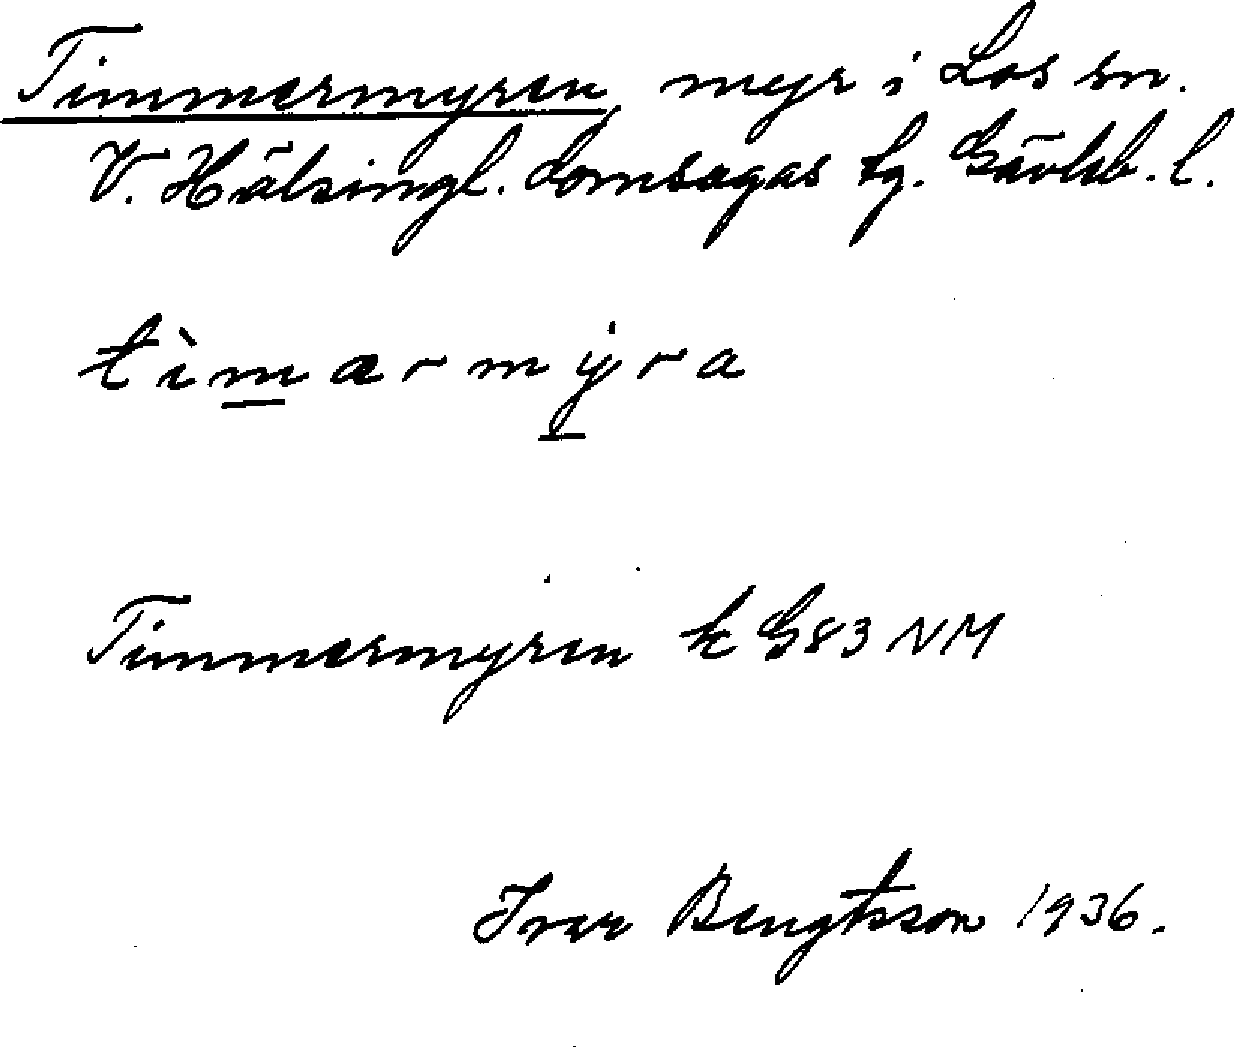 Timmermyren, myr i Los sn.
V. Hälsingl. domsagas tg. Gävleb. l.
tìmarmy̆ra
Timmermyren k G83 NM
Ivar Bengtsson 1936.